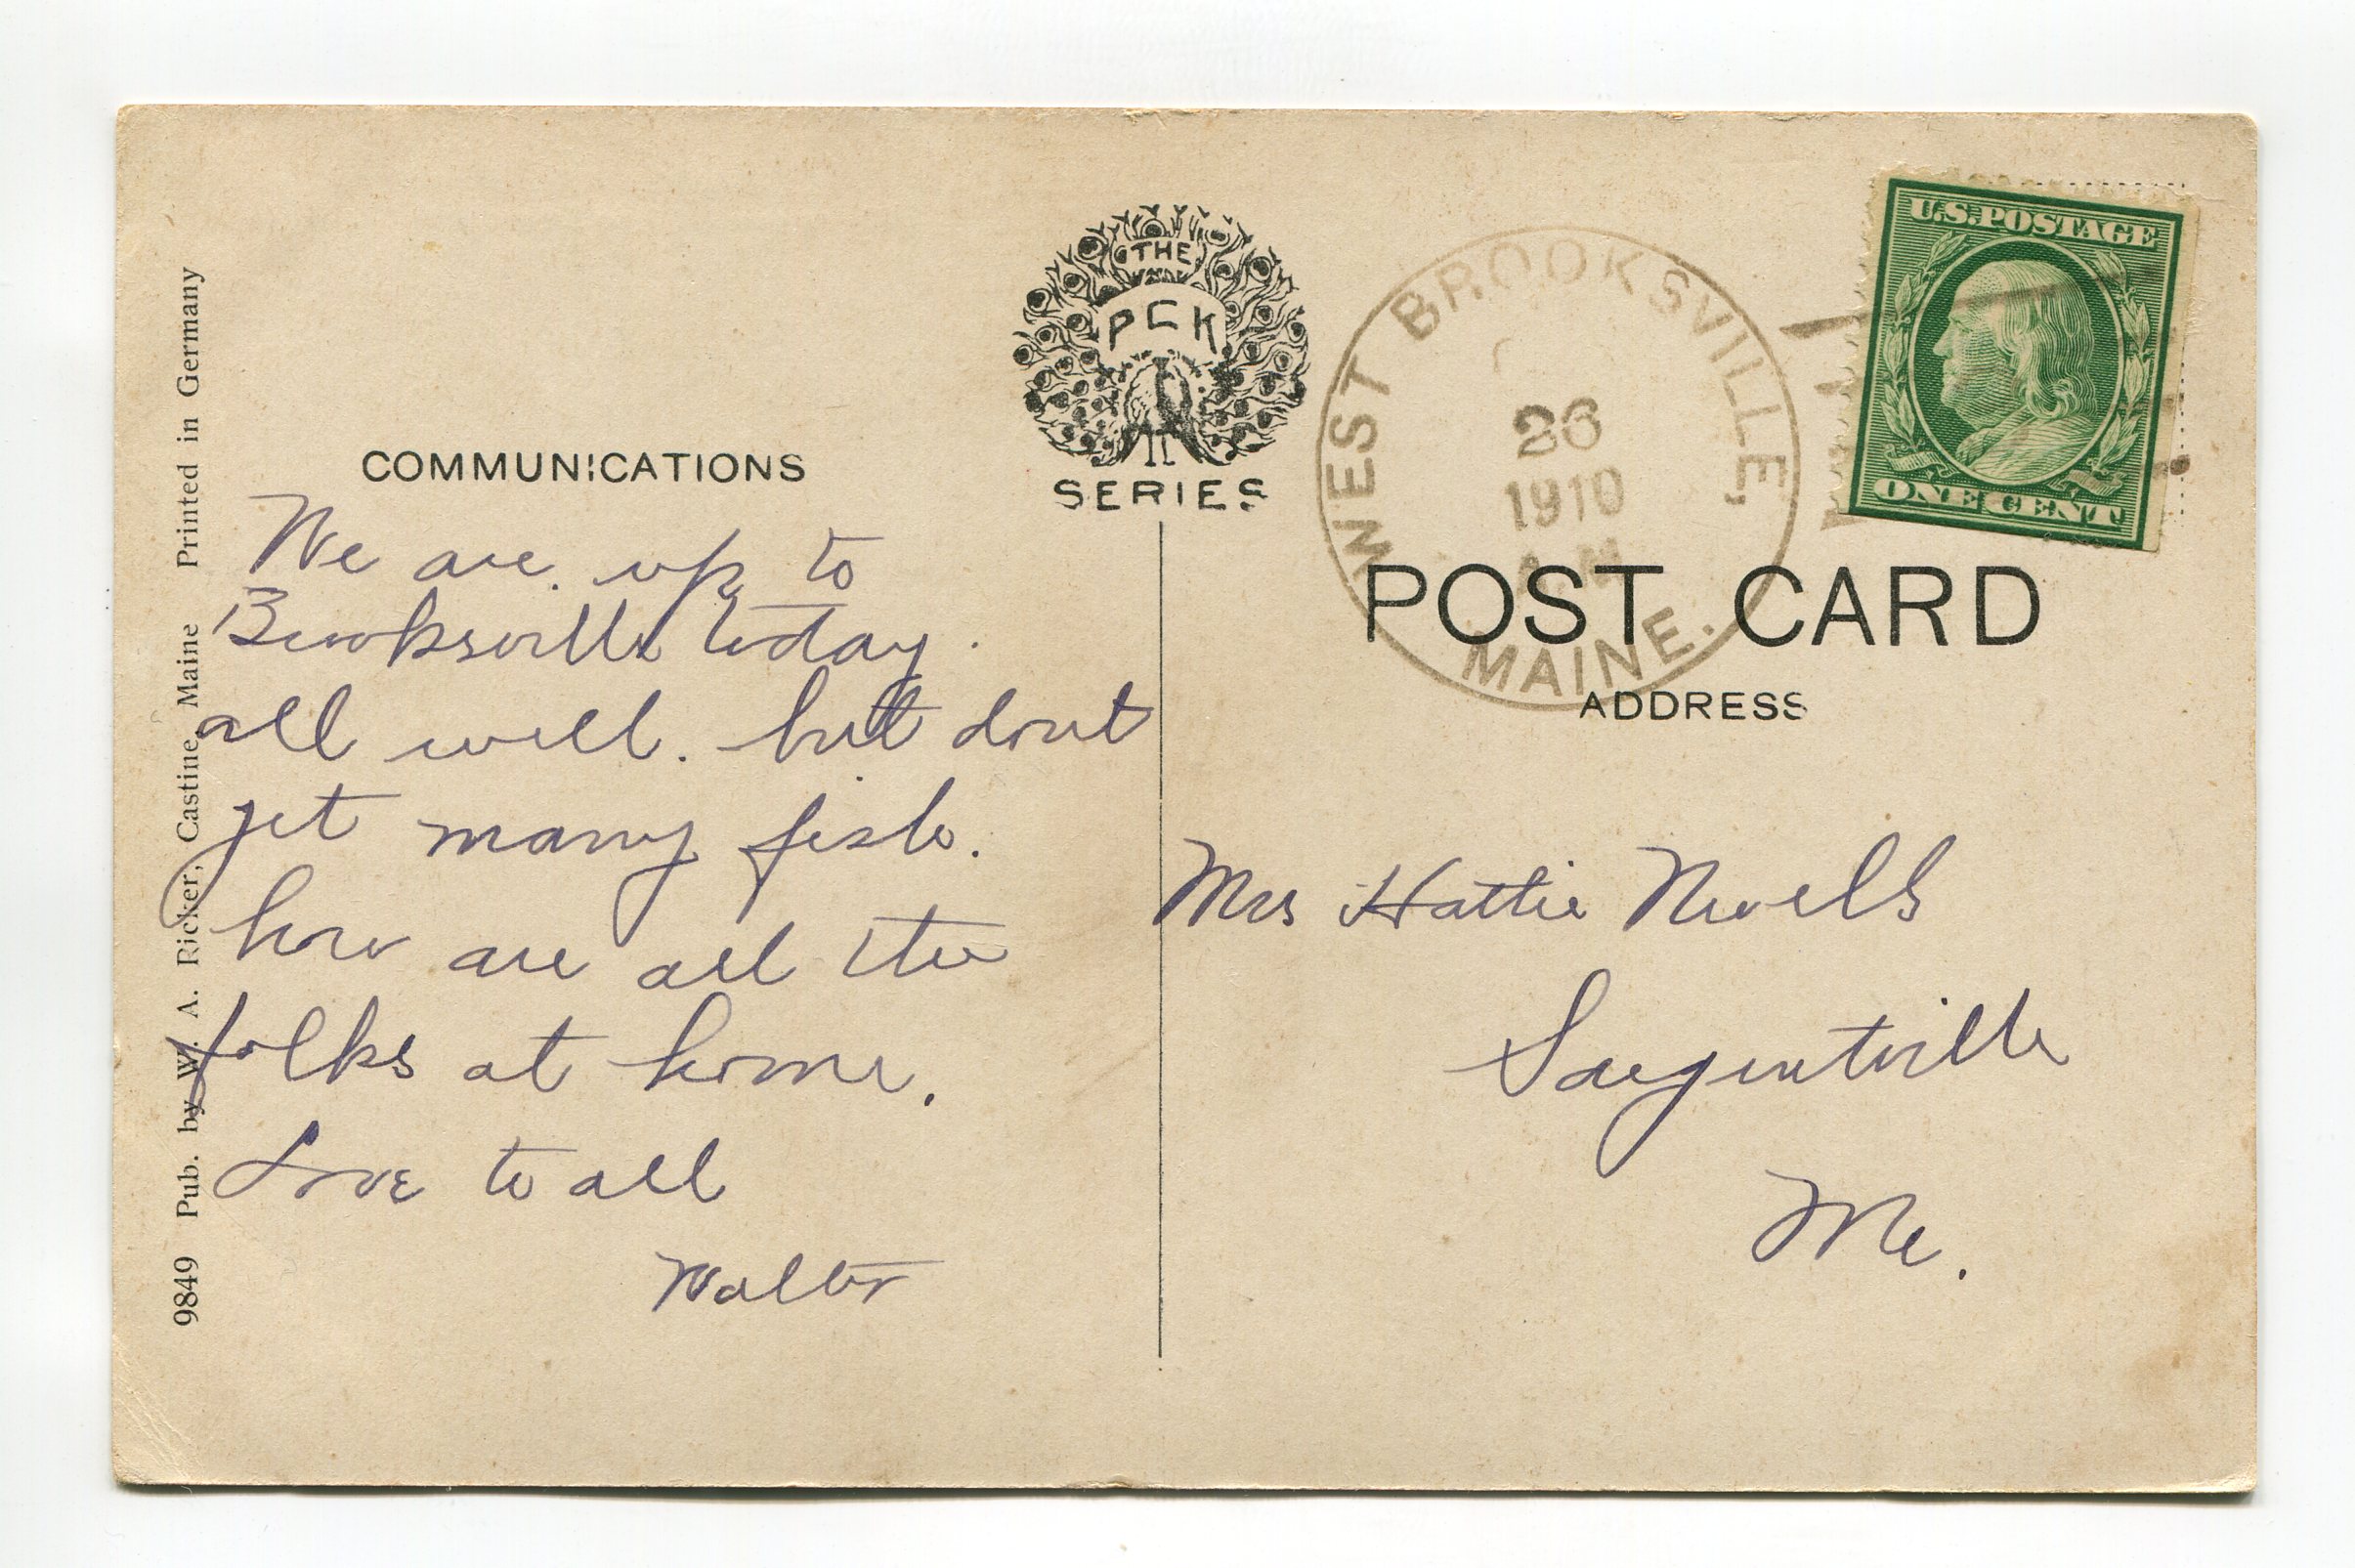 9849 Pub. by W. A. Ricker, Castine, Maine Printed in Germany
COMMUNICATIONS
We are up to
Brooksville today.
all well. but dont
get many fish.
how are all the
folks at home.
Love to all
Walter
THE
PCK
SERIES
WEST BROOKSVILLE,
26
1910
MAINE.
U.S. POSTAGE
ONE CENT
POST CARD
ADDRESS
Mrs Hattie
Sargentville
Me.